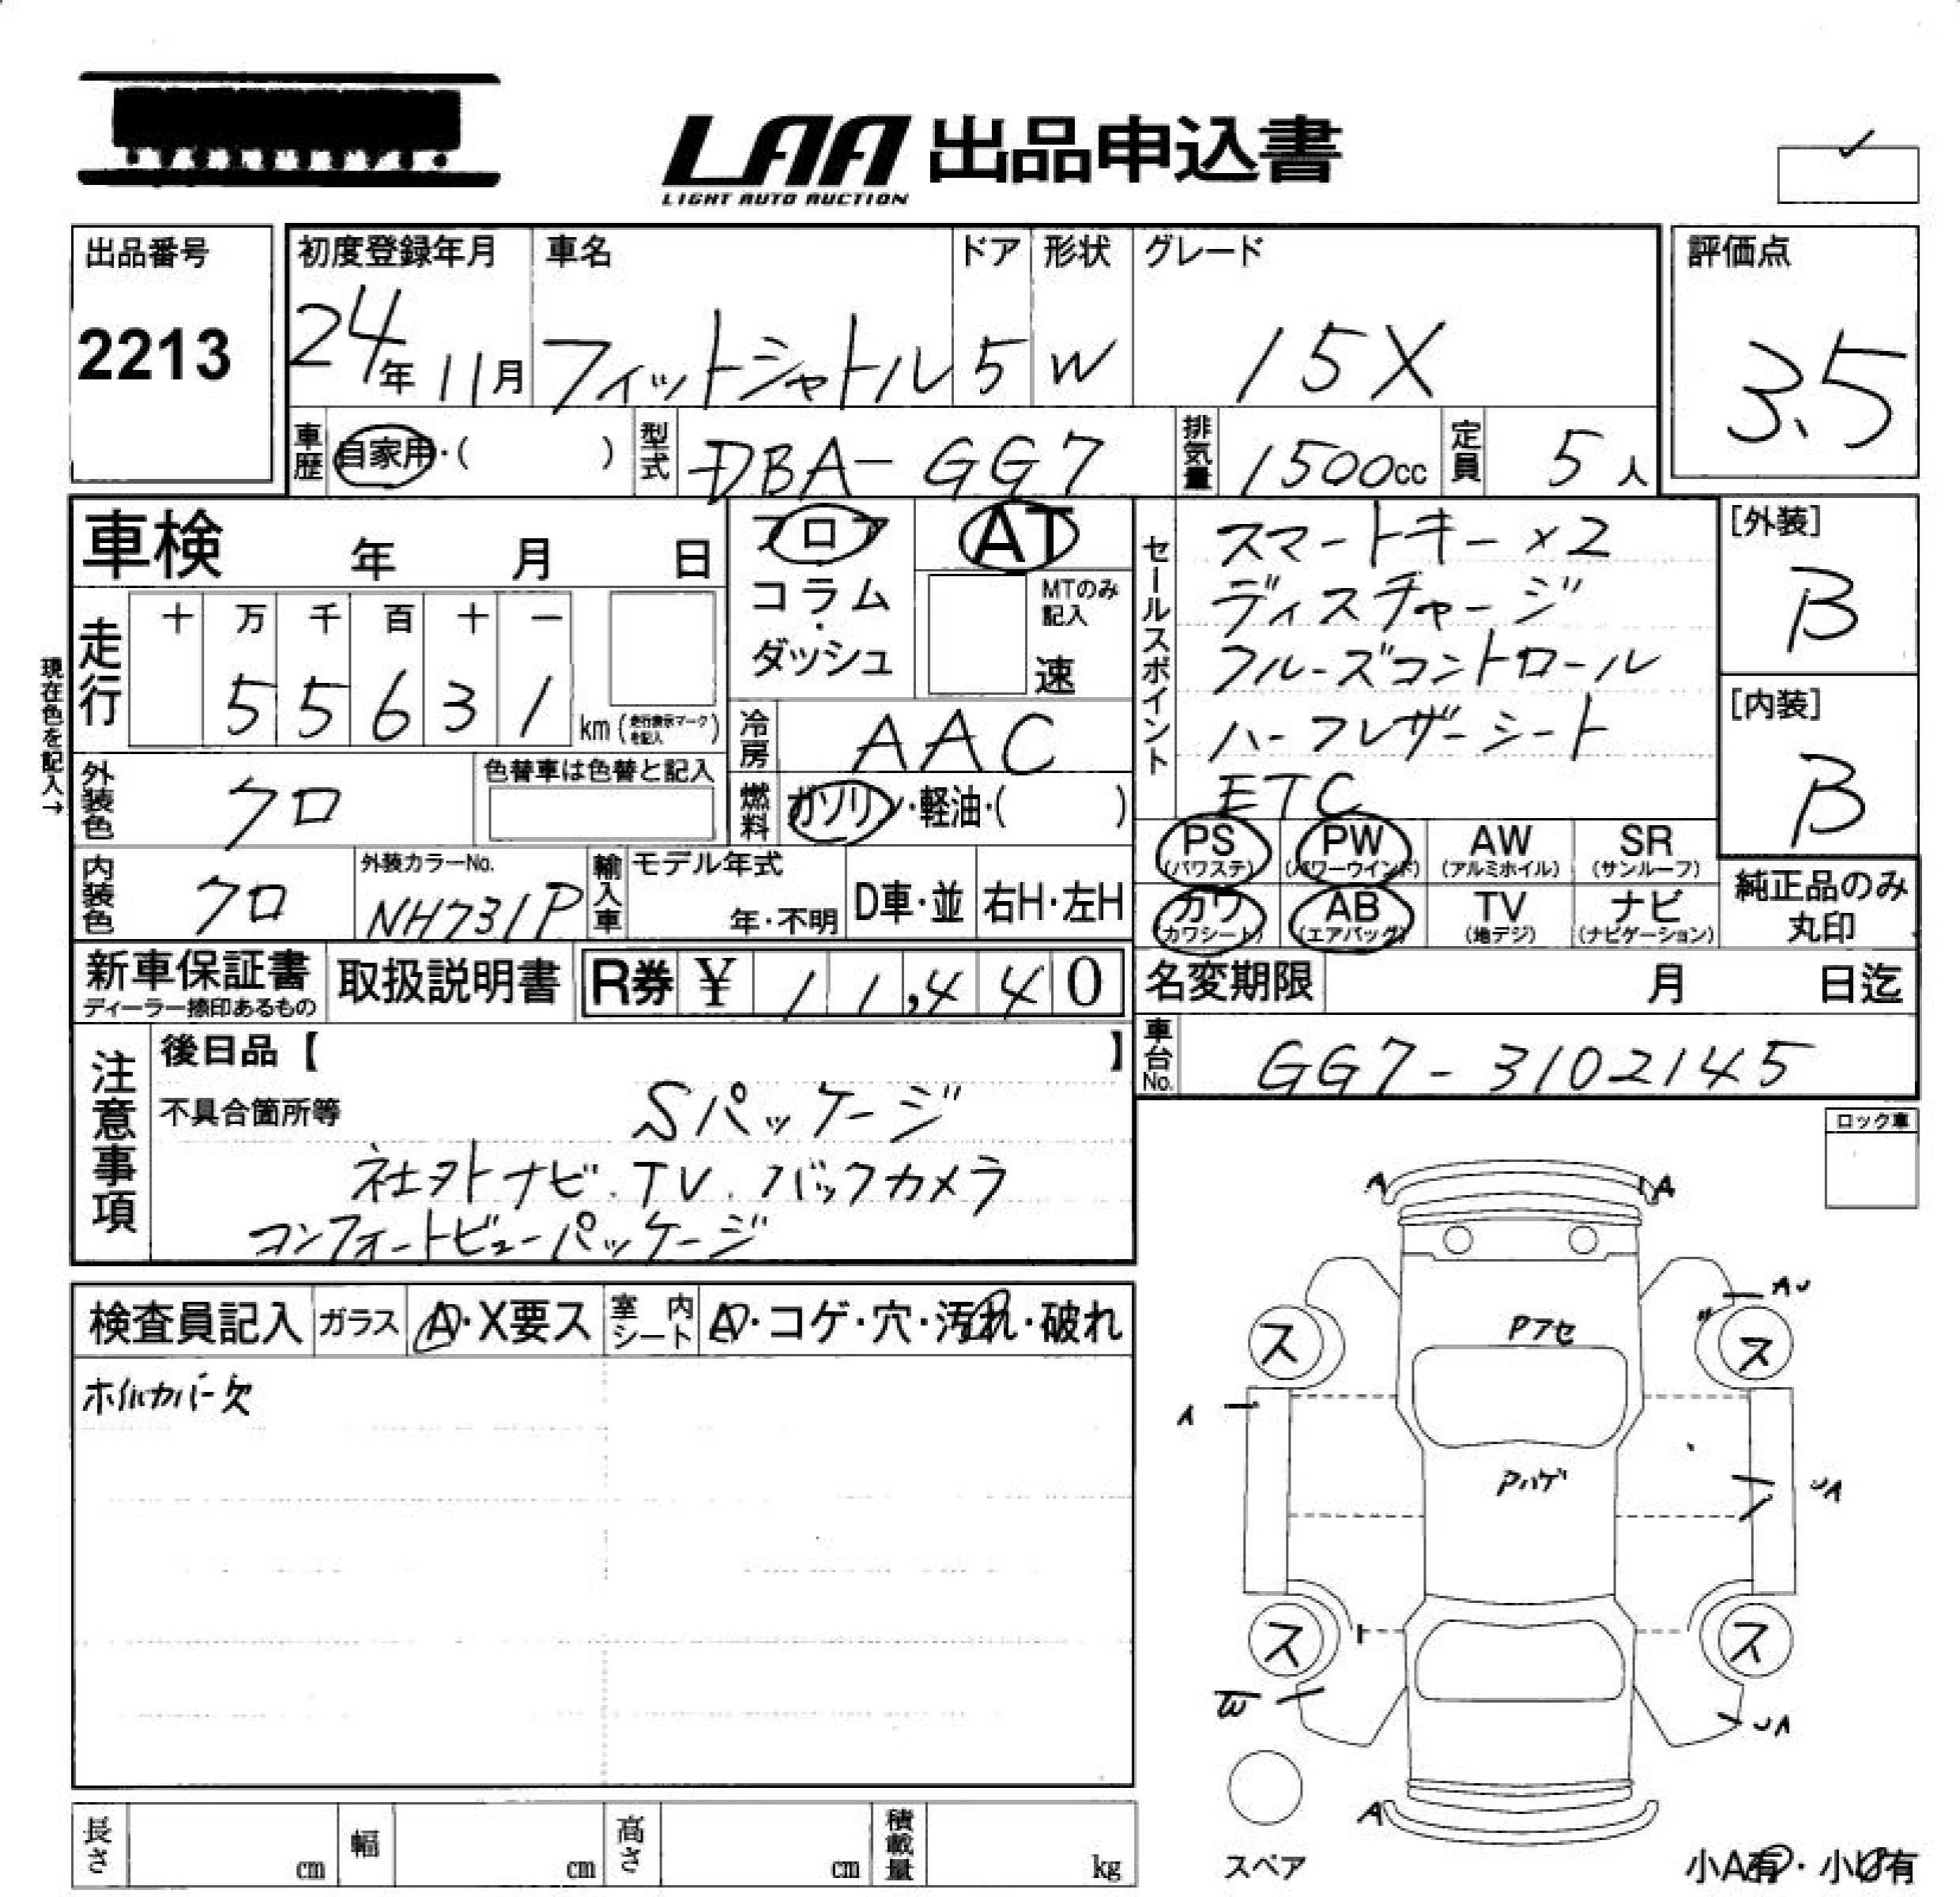 LAA 出品申込書
LIGHT AUTO AUCTION
出品番号
2213
初度登録年月
24年 11月
車名
フィットシャトル
ドア
5
形状
W
グレード
15X
評価点
3.5
車歴 自家用・( )
型式 DBA-GG7
排気量 1500cc
定員 5人
車検 年 月 日
フロア
コラム
・
ダッシュ
AT
MTのみ
記入
速
セールスポイント
スマートキー×2
ディスチャージ
クルーズコントロール
ハーフレザーシート
ETC
[外装]
B
[内装]
B
現在色を記入→
走行
十 万 千 百 十 一
5 5 6 3 1 km (走行表示マークを記入)
冷房 AAC
外装色 クロ
色替車は色替と記入
燃料 ガソリン・軽油・( )
PS (パワステ)
PW (パワーウインド)
AW (アルミホイル)
SR (サンルーフ)
カワ (カワシート)
AB (エアバッグ)
TV (地デジ)
ナビ (ナビゲーション)
純正品のみ
丸印
内装色 クロ
外装カラーNo.
NH731P
輸入車
モデル年式
年・不明
D車・並
右H・左H
新車保証書
ディーラー捺印あるもの
取扱説明書
R券 ¥ 11,440
名変期限 月 日迄
車台No. GG7-3102145
注意事項
後日品【 】
不具合箇所等
Sパッケージ
社外ナビ.TV.バックカメラ
コンフォートビューパッケージ
ロック車
検査員記入
ガラス A・X要ス
室内シート ・コゲ・穴・汚れ・破れ
ホイルカバー欠
A A
AU
Pアセ
ス ス
A
Pハゲ
UA
ス ス
W
UA
A
スペア
小A有・小U有
長さ cm
幅 cm
高さ cm
積載量 kg